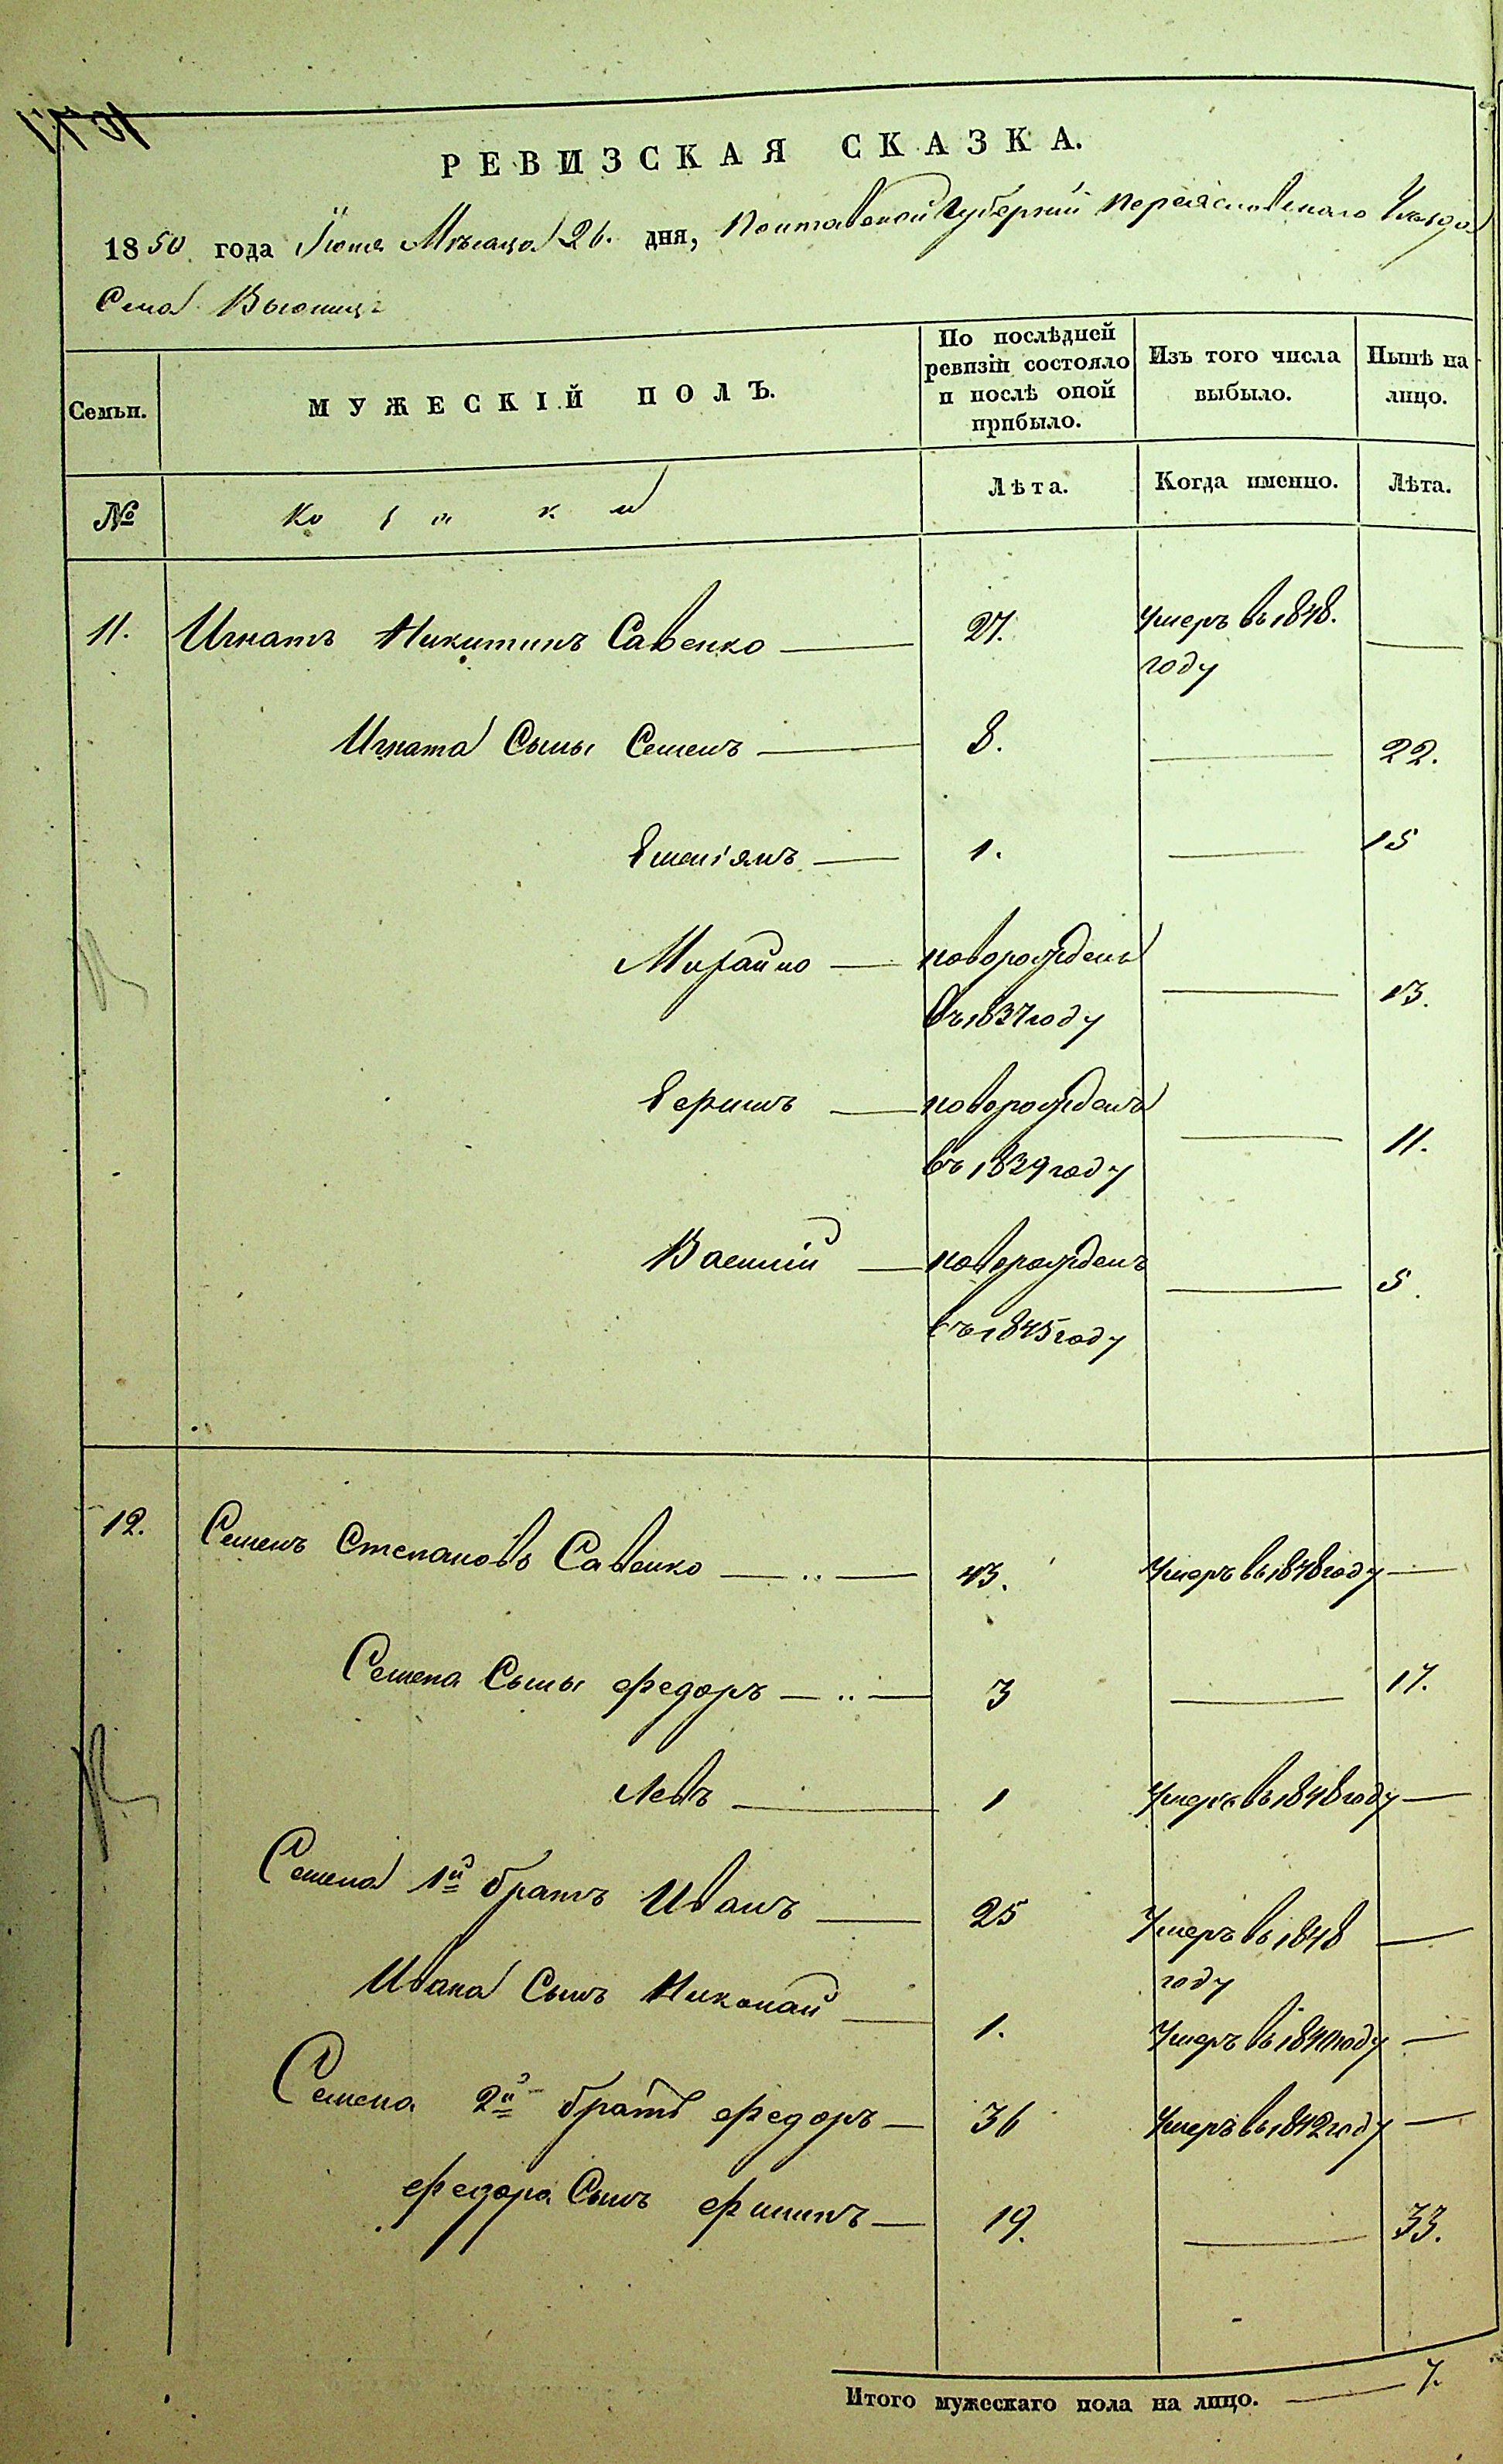 РЕВИЗСКАЯ СКАЗКА.
1850 года Іюня Мѣсяца 26. дня, Полтавской Губерніи Переяславскаго Уѣзда
Села Вьюнищъ
Семьи. МУЖЕСКІЙ ПОЛЪ. По послѣдней ревизіи состояло и послѣ оной прибыло. Изъ того числа выбыло. Нынѣ на лицо.
№ Козаки Лѣта. Когда именно. Лѣта.
11. Игнатъ Никитинъ Савенко — 27. Умеръ въ 1848. —
году
Игната Сыны Семенъ — 8. — 22.
Емеліянъ — 1. — 15
Михайло — новорожденъ
въ 1837 году — 13.
Ефимъ — новорожденъ
въ 1839 году — 11.
Василій — новорожденъ
въ 1845 году — 5.
12. Семенъ Степановъ Савенко — 43. Умеръ въ 1848 году —
Семена Сыны Федоръ — 3 — 17.
Левъ — 1 Умеръ въ 1848 году —
Семена 1й братъ Иванъ — 25 Умеръ въ 1848 —
году
Ивана Сынъ Николай — 1. Умеръ въ 1840 году —
Семена 2й братъ Федоръ — 36 Умеръ въ 1842 году —
Федора Сынъ Филипъ — 19. — 33.
Итого мужескаго пола на лицо. — 7.